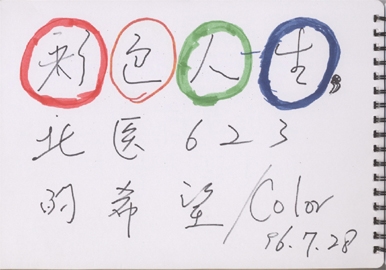 彩色人生
北医623
的希望/Color
96.7.28